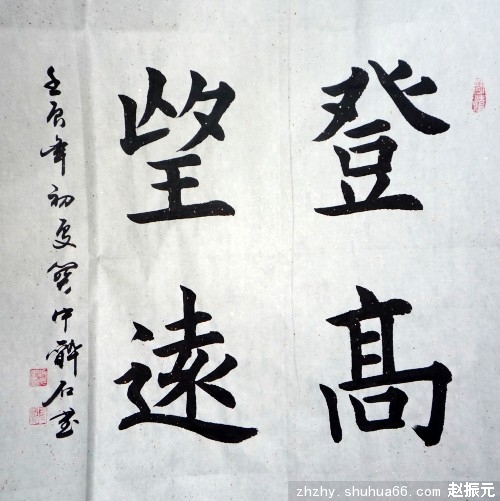 登高
望遠
壬辰年初夏冀中醉石書
zhzhy.shuhua66.com 赵振元